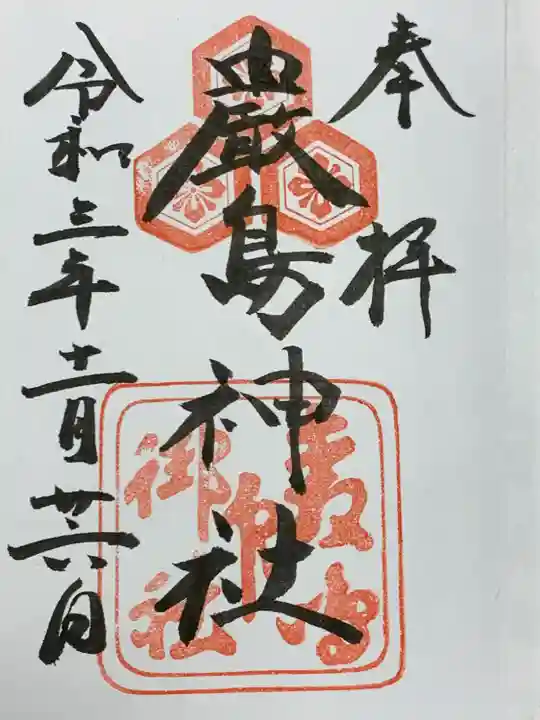 奉拝
嚴島神社
令和三年十一月廿六日